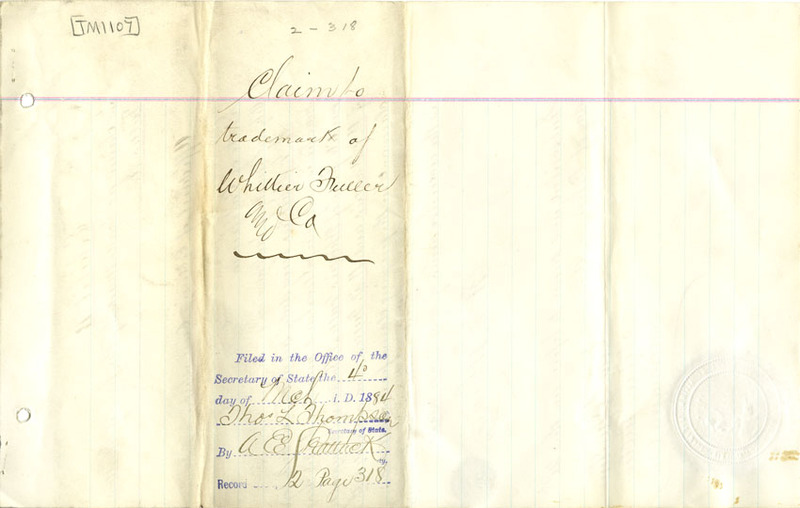 [TM1107]
2 - 318
Claim to
trademark of
Whittier Fuller
and Co
Filed in the Office of the
Secretary of State the 4°
day of Mch A. D. 1884
Thos L. Thompson
Secretary of State.
By A E
Record 2 Page 318